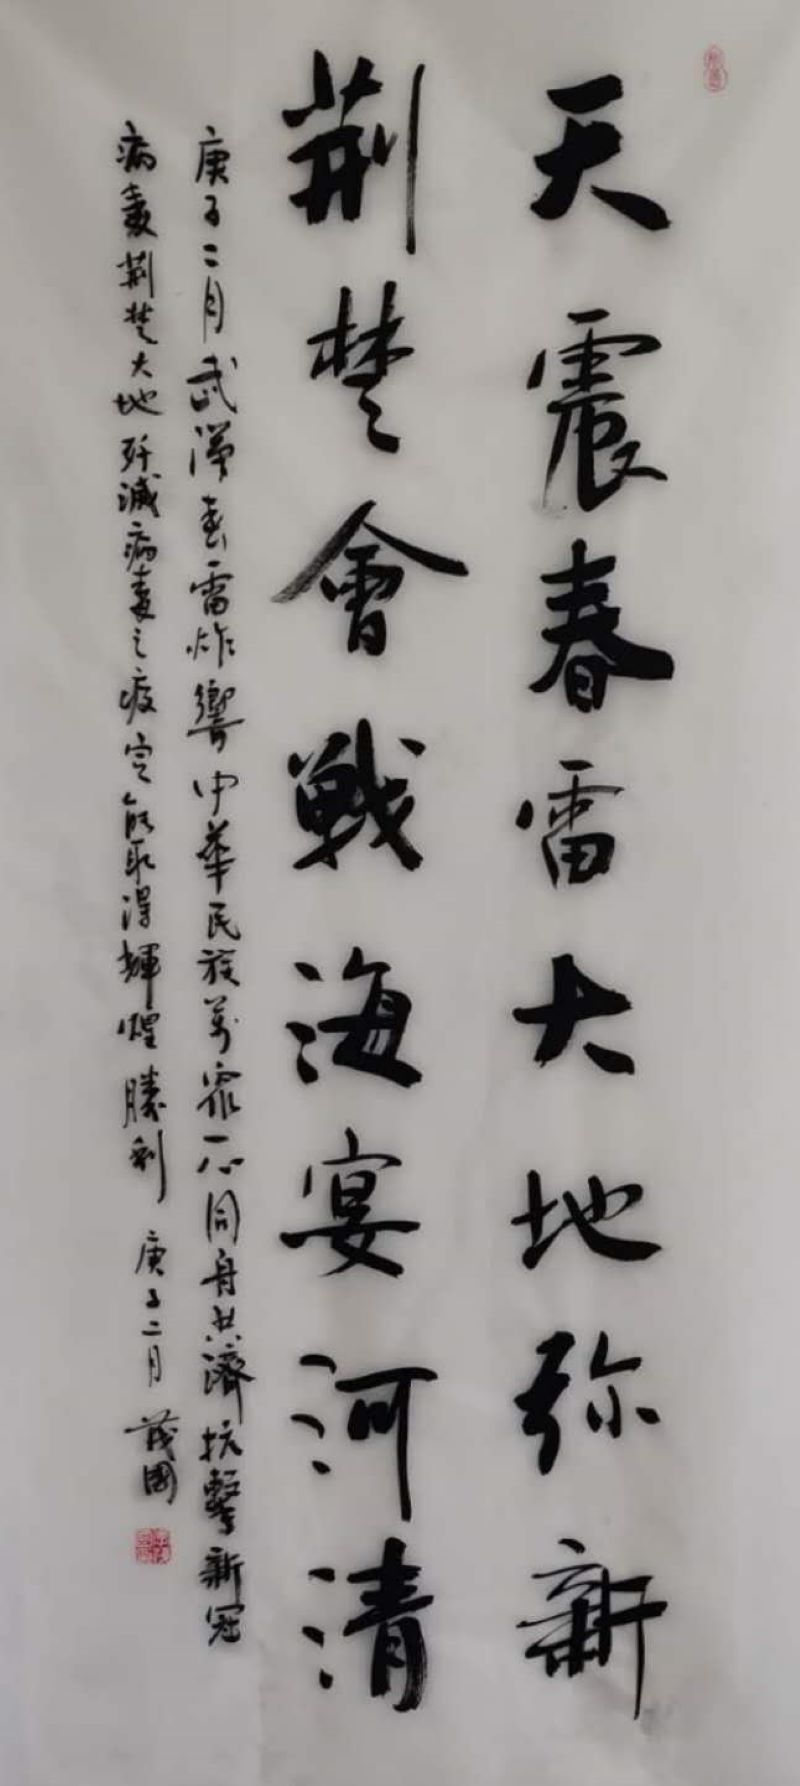 天震春雷大地弥新
荆楚會戰海宴河清
庚子二月武漢春雷炸響中華民族萬衆一心同舟共濟抗擊新冠
病毒荆楚大地殲滅病毒之疫定能取得輝煌勝利 庚子二月 茂國